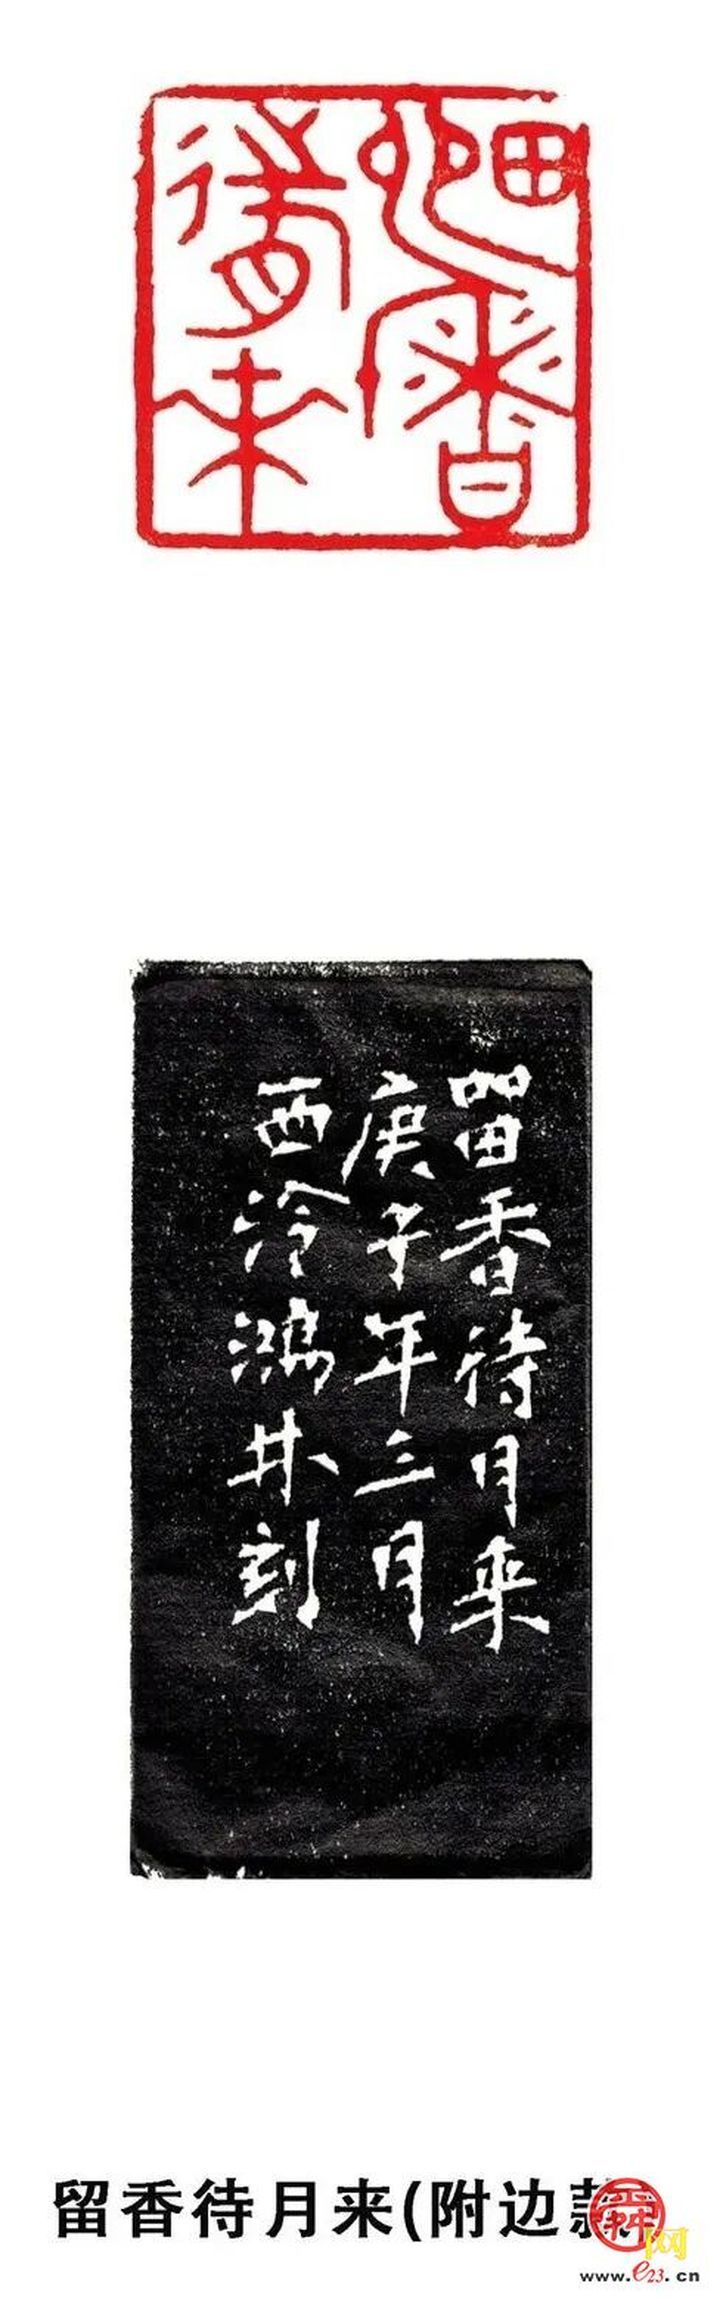 留香待月来
留香待月来
庚子年三月
西泠鸿林刻
留香待月来(附边款)
舜网
www.e23.cn